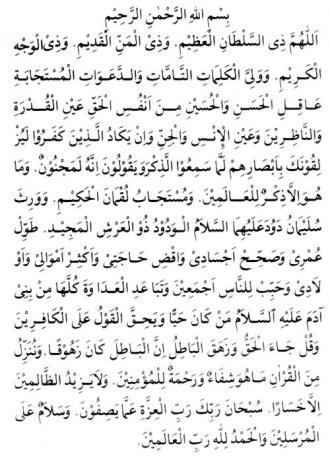 بِسْمِ اللهِ الرَّحْمٰنِ الرَّحِيْمِ
اَللّٰهُمَّ ذِى السُّلْطَانِ الْعَظِيْمِ. وَذِىْ الْمَنِّ الْقَدِيْمِ. وَذِىْ الْوَجْهِ
الْكَرِيْمِ. وَوَلِيَّ الْكَلِمَاتِ التَّامَّاتِ وَالدَّعَوَاتِ الْمُسْتَجَابَةِ
عَاقِلِ الْحَسَنِ وَالْحُسَيْنِ مِنْ اَنْفُسِ الْحَقِّ عَيْنِ الْقُدْرَةِ
وَالنَّاظِرِيْنَ وَعَيْنِ الْاِنْسِ وَالْجِنِّ وَاِنْ يَكَادُ الَّذِيْنَ كَفَرُوْا لَيُزْ
لِقُوْنَكَ بِاَبْصَارِهِمْ لَمَّا سَمِعُوا الذِّكْرَ وَيَقُوْلُوْنَ اِنَّهُ لَمَجْنُوْنٌ. وَمَا
هُوَ اِلَّا ذِكْرٌ لِلْعَالَمِيْنَ. وَمُسْتَجَابُ لُقْمَانَ الْحَكِيْمِ. وَوَرِثَ
سُلَيْمَانُ دَاوُدَ عَلَيْهِمَا السَّلَامُ الْوَدُوْدُ ذُو الْعَرْشِ الْمَجِيْدِ. طَوِّلْ
عُمْرِىْ وَصَحِّحْ اَجْسَادِىْ وَاقْضِ حَاجَتِىْ وَاَكْثِرْ اَمْوَالِىْ وَاَوْ
لَادِىْ وَحَبِّبْ لِلنَّاسِ اَجْمَعِيْنَ وَتَبَاعَدِ الْعَدَاوَةَ كُلَّهَا مِنْ بَنِىْ
آدَمَ عَلَيْهِ السَّلَامُ مَنْ كَانَ حَيًّا وَيَحِقَّ الْقَوْلُ عَلَى الْكَافِرِيْنَ
وَقُلْ جَاءَ الْحَقُّ وَزَهَقَ الْبَاطِلُ اِنَّ الْبَاطِلَ كَانَ زَهُوْقًا. وَنُنَزِّلُ
مِنَ الْقُرْاٰنِ مَا هُوَ شِفَاءٌ وَرَحْمَةٌ لِلْمُؤْمِنِيْنَ. وَلَا يَزِيْدُ الظَّالِمِيْنَ
اِلَّا خَسَارًا. سُبْحَانَ رَبِّكَ رَبِّ الْعِزَّةِ عَمَّا يَصِفُوْنَ. وَسَلَامٌ عَلَى
الْمُرْسَلِيْنَ وَالْحَمْدُ لِلّٰهِ رَبِّ الْعَالَمِيْنَ.